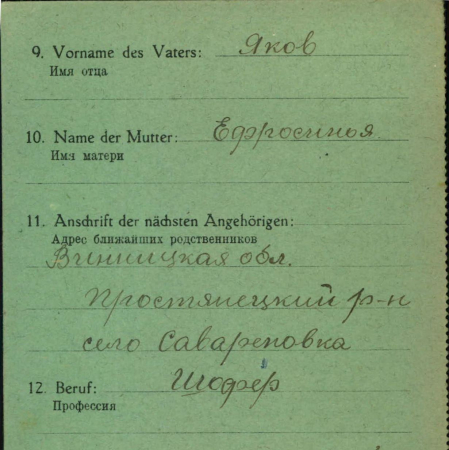 9. Vorname des Vaters: Яков
Имя отца
10. Name der Mutter: Ефросинья
Имя матери
11. Anschrift der nächsten Angehörigen:
Адрес ближайших родственников
Винницкая обл.
Простянецкий р-н
село Савареновка
12. Beruf: Шофёр
Профессия